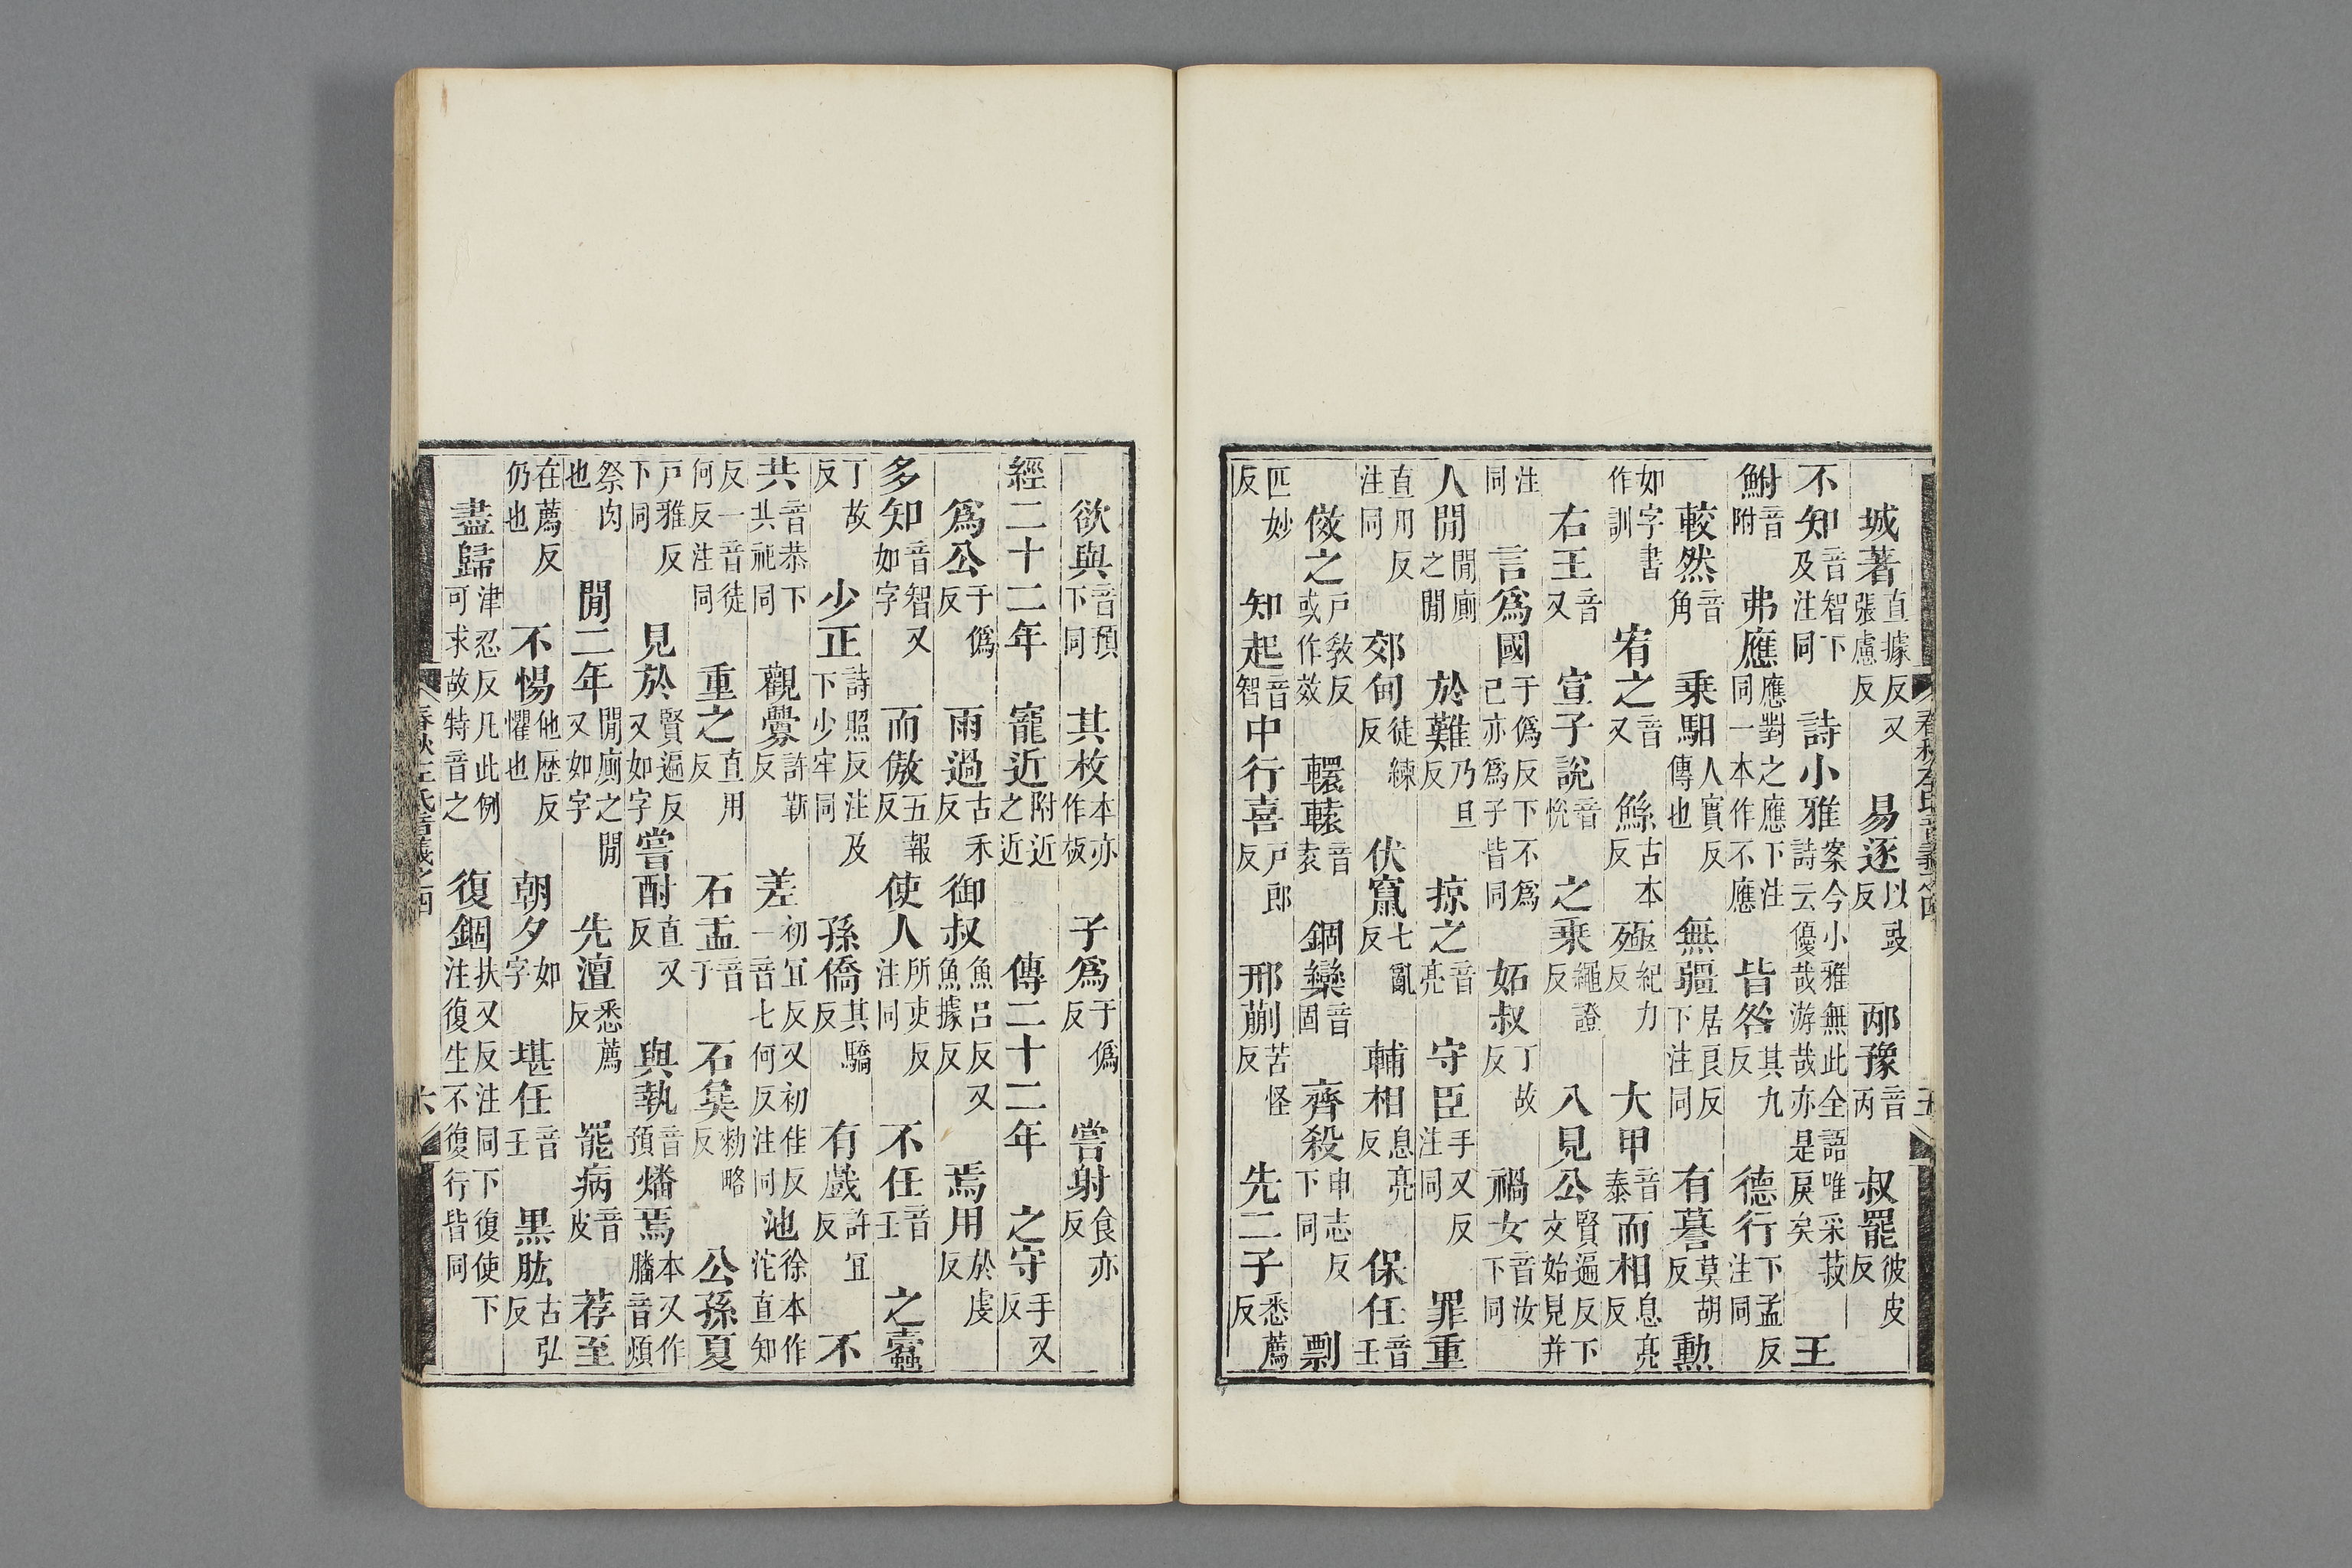 城著直據反又張慮反 易逐以豉反 邴豫音丙 叔罷彼皮反
不知音智下及注同 詩小雅案今小雅無此全語唯采菽詩云優哉游哉亦是戾矣 王
鮒音附 弗應應對之應下注同一本作不應 皆咎其九反 德行下孟反注同
較然音角 乗馹人實反傳也 無疆居良反下注同 有謩莫胡反 勲
如字書作訓 宥之音又 鯀古本反 殛紀力反 大甲音泰 而相息亮反
右王音又 宣子說音悅 之乗繩證反 八見公賢遍反下文始見并
注同 言爲國于僞反下不爲己亦爲子皆同 妬叔丁故反 禍女音汝下同
人閒閒廁之閒 於難乃旦反 掠之音亮 守臣手又反注同 罪重
直用反注同 郊甸徒練反 伏竄七亂反 輔相息亮反 保任音壬
傚之戸敎反或作效 轘轅音袁 錮欒音固 齊殺申志反下同 剽
匹妙反 知起音智 中行喜戸郎反 邢蒯苦怪反 先二子悉薦反
欲與音預下同 其枚本亦作板 子爲于僞反 嘗射食亦反
經二十二年 寵近附近之近 傳二十二年 之守手又反
爲公于僞反 雨過古禾反 御叔魚呂反又魚據反 焉用於虔反
多知音智又如字 而傲五報反 使人所吏反注同 不任音壬 之蠹
丁故反 少正詩照反注及下少牢同 孫僑其驕反 有戲許宜反 不
共音恭下共祀同 觀釁許靳反 差初宜反又初佳反一音七何反注同 池徐本作沱直知
反一音徒何反注同 重之直用反 石盂音于 石㚟勑略反 公孫夏
戸雅反下同 見於賢遍反又如字 嘗酎直又反 與執音預 燔焉本又作膰音煩
祭肉也 閒二年閒廁之閒又如字 先澶悉薦反 罷病音皮 荐至
在薦反仍也 不惕他歴反懼也 朝夕如字 堪任音壬 黒肱古弘反
盡歸津忍反凡此例可求故特音之 復錮扶又反注同下復使下注復生不復行皆同
春秋左氏音義之四 六